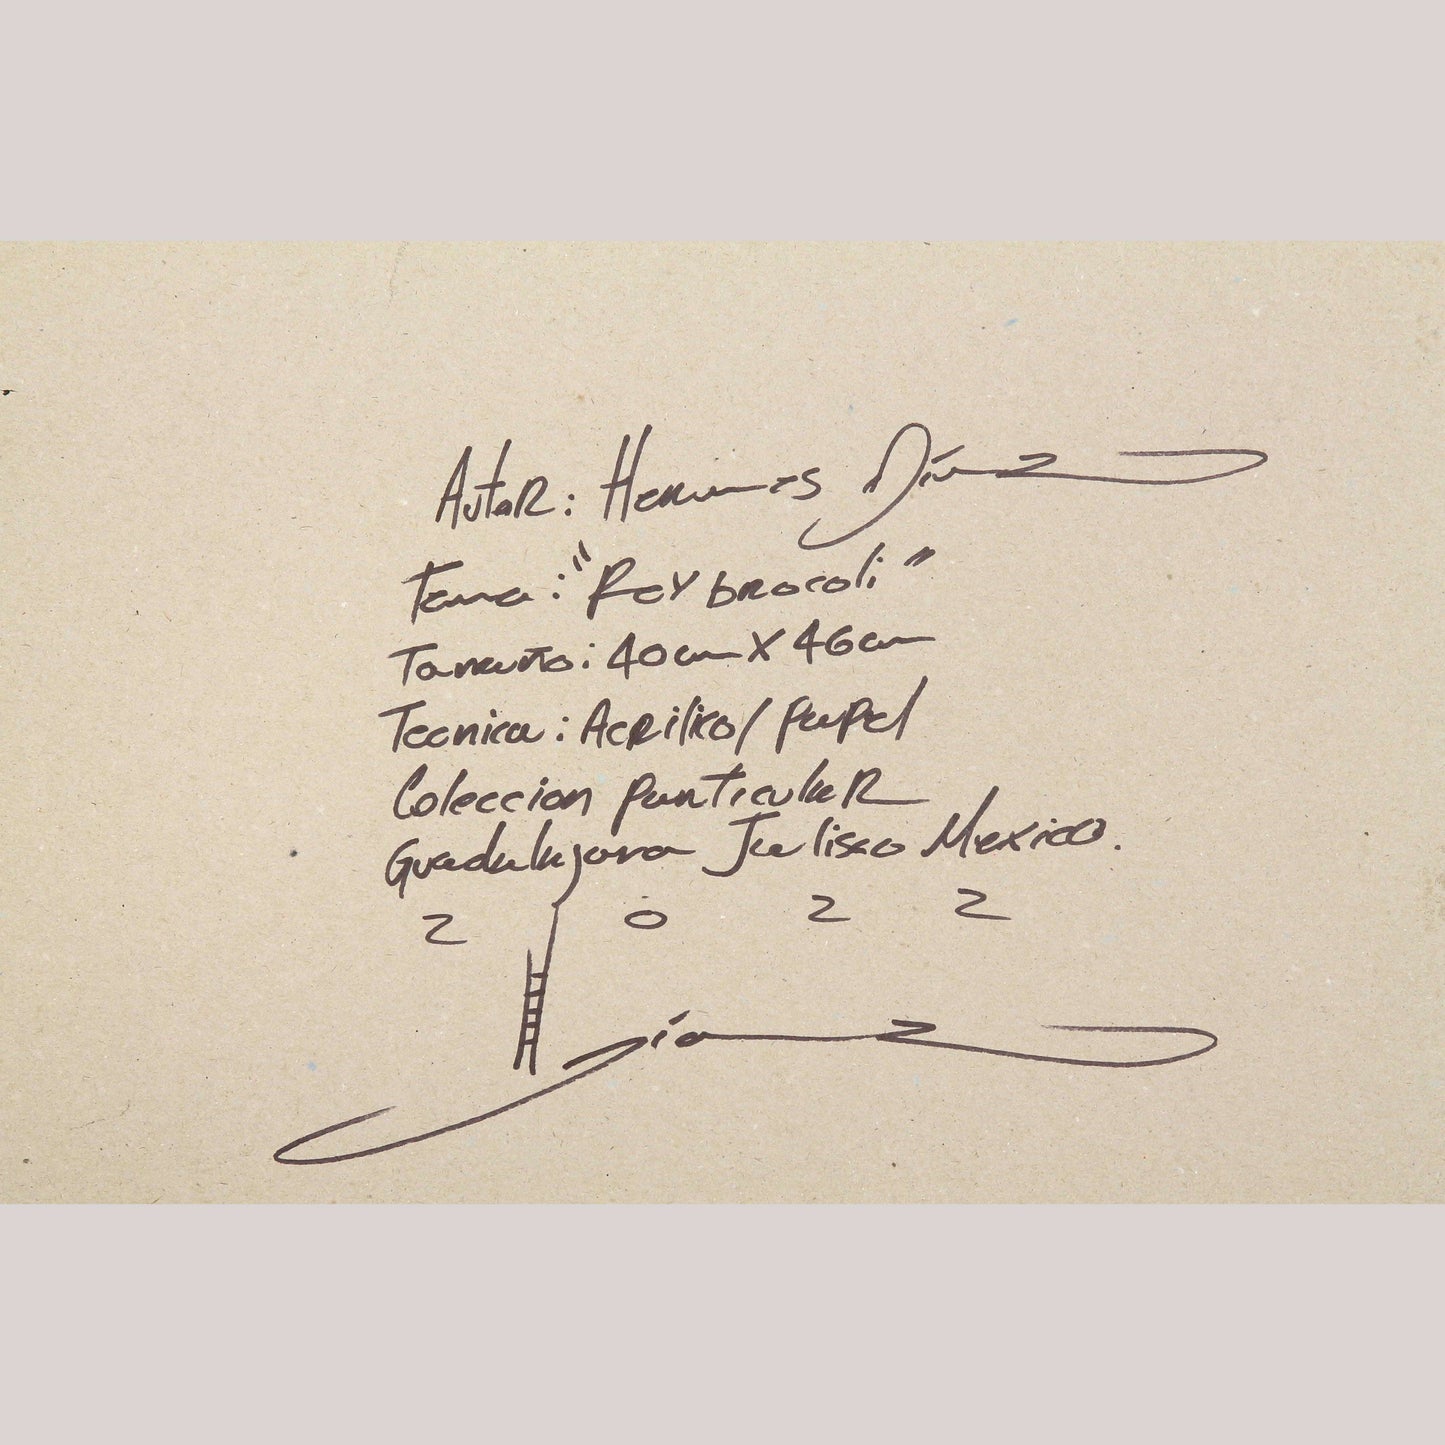 Autor: Hermes Díaz
Tema: "Rey brocoli"
Tamaño: 40cm X 46cm
Tecnica: Acrilico/papel
Coleccion particular
Guadalajara Jalisco Mexico.
2 0 2 2
Díaz